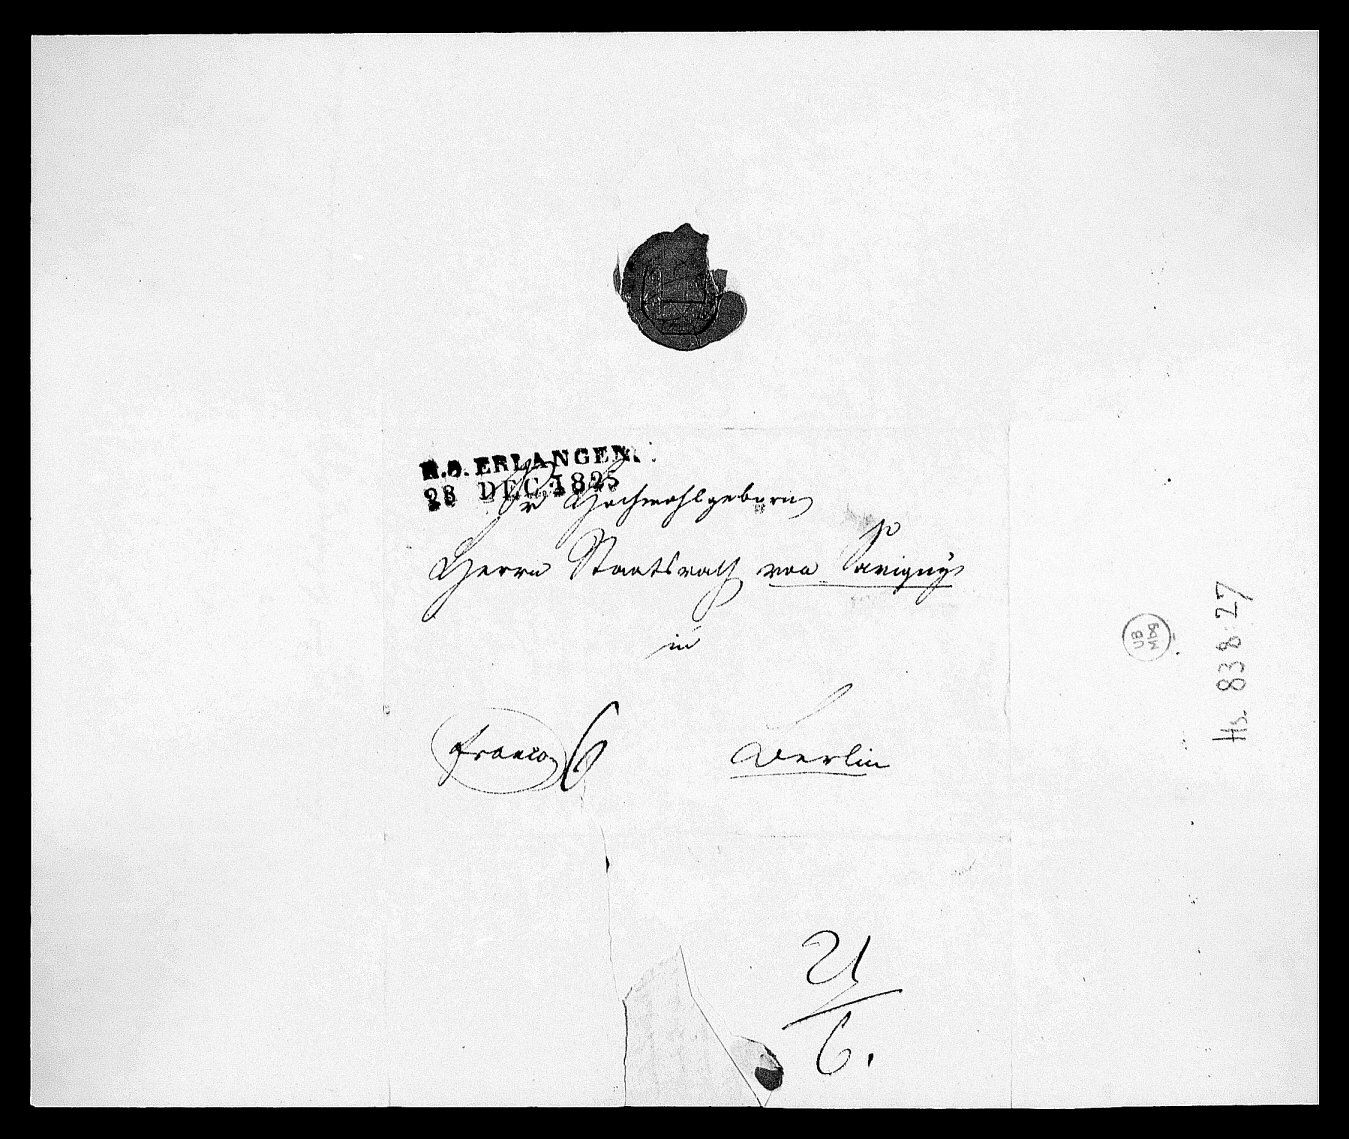 R.S. ERLANGEN.
28 DEC. 1825
Sr Hochwohlgeborn
Herrn Staatsrath von Savigny
in
franco 6
Berlin
21
6.
UB
Mbg
Hs. 838:27